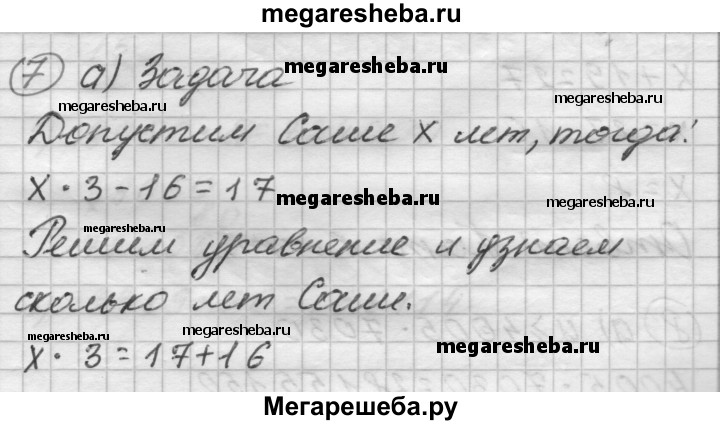 megaresheba.ru
7 а) Задача megaresheba.ru
megaresheba.ru megaresheba.ru
Допустим Саше х лет, тогда:
х · 3 - 16 = 17 megaresheba.ru megaresheba.ru
Решим уравнение и узнаем
сколько лет Саше.
megaresheba.ru megaresheba.ru megaresheba.ru
х · 3 = 17 + 16
Мегарешеба.ру